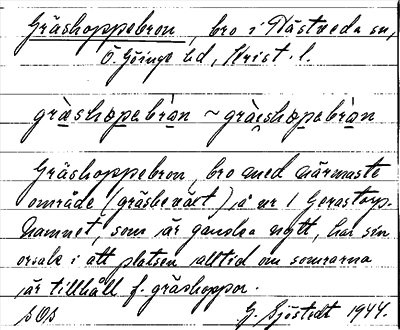 Gräshoppebron, bro i Nästveda sn,
Ö. Göinge hd, Krist. l.
gràshopebròn ~ gràeshopebràn
Gräshoppebron, bro med närmaste
område (gräsbeväxt) å nr 1 Gerastorp.
Namnet, som är ganska nytt, har sin
orsak i att platsen alltid om somrarna
är tillhåll f. gräshoppor.
G. Sjöstedt 1944.